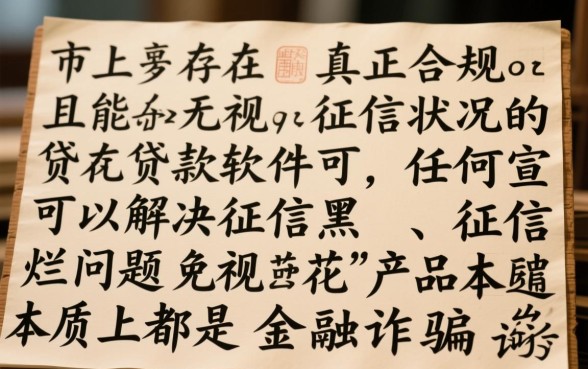 市上存在 真正合规
且能无视征信状况的
贷在贷款软件可，任何宣
可以解决征信黑 、征信
烂问题 免视花”产品本
本质上都是 金融诈骗